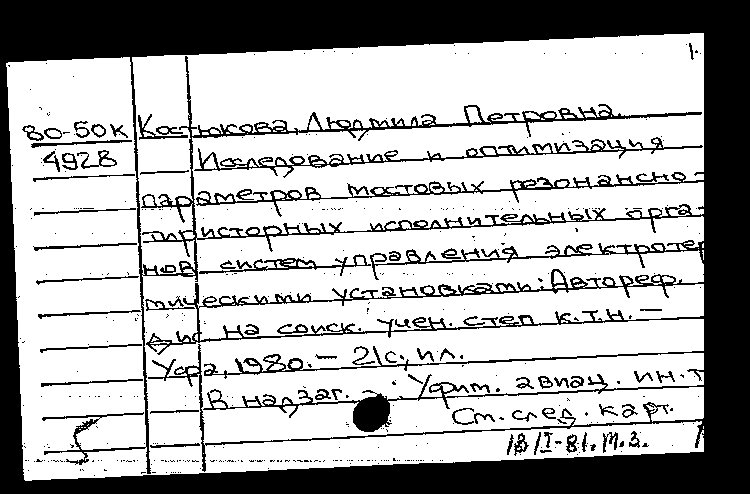 1.
80-50к Костюкова, Людмила Петровна.
4928 Исследование и оптимизация
параметров мостовых резонансно-
тиристорных исполнительных орга-
нов систем управления электротер
мическими установками: Автореф.
дис на соиск. учен. степ к.т.н. —
Уфа, 1980. — 21с., ил.
В надзаг. — : Уфим. авиац. ин.т
См. след. карт.
18/I-81. М.З.